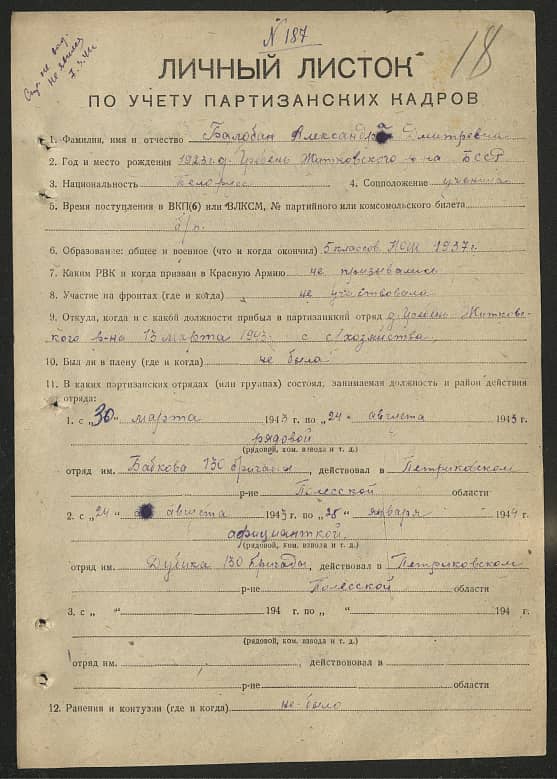 N 187
18
не явил
7.3.44
ЛИЧНЫЙ ЛИСТОК
ПО УЧЕТУ ПАРТИЗАНСКИХ КАДРОВ
1. Фамилия, имя и отчество Балобан Александра Дмитревна
2. Год и место рождения 1923 г. д. Житковского р-на БССР
3. Национальность Белорус 4. Соцположение ученица
5. Время поступления в ВКП(б) или ВЛКСМ, № партийного или комсомольского билета
б/п.
6. Образование: общее и военное (что и когда окончил) 5 классов НСШ 1937 г.
7. Каким РВК и когда призван в Красную Армию не призывались
8. Участие на фронтах (где и когда) не участвовала
9. Откуда, когда и с какой должности прибыл в партизанский отряд д. Житковс-
кого р-на 13 марта 1943 с с/хозяйства
10. Был ли в плену (где и когда) не была
11. В каких партизанских отрядах (или группах) состоял, занимаемая должность и район действия
отряда:
1. с „30" марта 1943 г. по „24" августа 1943 г.
рядовой
(рядовой, ком. взвода и т. д.)
отряд им. Бабкова 130 бригады, действовал в Петриковском
р-не Полесской области
2. с „24" августа 1943 г. по „28" января 1944 г.
официанткой
(рядовой, ком. взвода и т. д.)
отряд им. Дубика 130 бригады, действовал в Петриковском
р-не Полесской области
3. с „ " 194 г. по „ " 194 г.
(рядовой, ком. взвода и т. д.)
отряд им. , действовал в
р-не области
12. Ранения и контузии (где и когда) не было